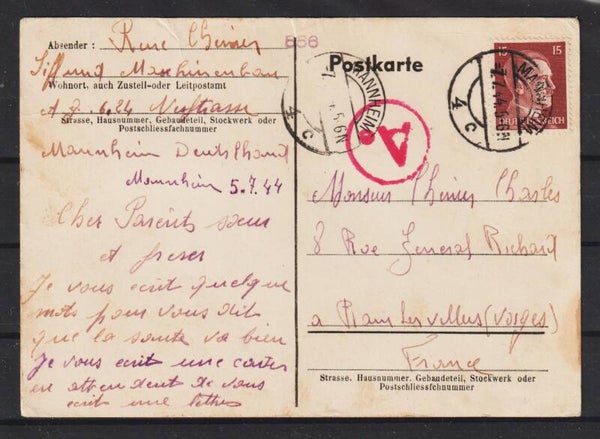 Absender : Rene Thirier
866
Postkarte
Siff und Maschinenbau
Wohnort, auch Zustell- oder Leitpostamt
A
Straße, Hausnummer, Gebäudeteil, Stockwerk oder
Postschließfachnummer
Mannheim Deutshand
Mannheim 5.7.44
Cher Parents sœur
et freres
Je vous ecrit quelque
mots pour vous dit
que la sante va bien
Je vous ecrit une cartes
en attendent de vous
ecrit une lettres
MANNHEIM
4 c
15 15
DEUTSCHES REICH
MANNHEIM
4 c
A
Monsieur Thirier Charles
8 Rue General Richard
a (Vosges)
France
Strasse, Hausnummer, Gebäudeteil, Stockwerk oder
Postschliessfachnummer